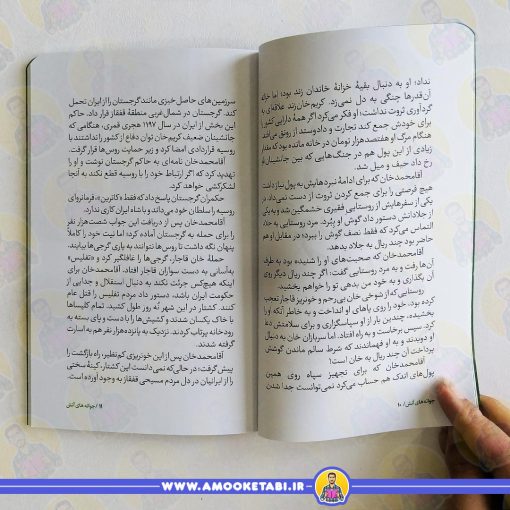 نداد؛ او به دنبال بقیهٔ خزانهٔ خاندان زند بود؛ اما خزانه
آن‌قدرها چنگی به دل نمی‌زد. کریم‌خان‌زند علاقه‌ای به
گردآوری ثروت نداشت؛ او فکر می‌کرد اگر همهٔ دارایی کشور را
برای خودش جمع کند تجارت و دادوستد از رونق می‌افتد.
هنگام مرگ او هفتصدهزار تومان در خانه مانده بود که مقدار
زیادی از این پول هم در جنگ‌هایی که بین جانشینان او
رخ داد حیف و میل شد.
آقامحمدخان که برای ادامهٔ نبردهایش به پول نیاز داشت
هیچ فرصتی را برای جمع کردن ثروت از دست نمی‌داد. در
یکی از سفرهایش از روستایی فقیری خشمگین شد و به یکی
از جلادانش دستور داد گوش او ببُرد. مرد روستایی به جلاد
التماس کرد که فقط نصف گوش را ببرد و در مقابل او هم
حاضر بود چند ریال به جلاد بدهد.
آقامحمدخان که صحبت‌های او را شنیده بود به طرف
آن‌ها رفت و به مرد روستایی گفت: اگر چند ریال دیگر روی
آن بگذاری و به خود من بدهی تو را خواهم بخشید.
روستایی که از شوخی خان بی‌رحم و خونریز قاجار تعجب
کرده بود، خود را روی پاهای او انداخت و به خاطر آنکه او را
بخشیده، چندین بار از او سپاسگزاری و برای سلامتش دعا
کرد. سپس برخاست و به راه افتاد. اما سربازان خان به دنبال
او دویدند و به او فهماندند که شرط سالم ماندن گوشش
پرداخت آن چند ریال به خان است!
آقامحمدخان که برای تجهیز سپاه روی همین
پول‌های اندک هم حساب می‌کرد نمی‌توانست جدا شدن
جوانه های آتش / ۱۰
سرزمین‌های حاصل خیزی مانند گرجستان را از ایران تحمل
کند. گرجستان در شمال‌غربی منطقهٔ قفقاز قرار داد. حاکم
این بخش از ایران در سال ۱۱۹۷ هجری قمری، هنگامی که
جانشینان ضعیف کریم‌خان توان دفاع از کشور را نداشتند با
روسیه قراردادی امضا کرد و زیر حمایت روس‌ها قرار گرفت.
آقامحمدخان نامه‌ای به حاکم گرجستان نوشت و او را
تهدید کرد که اگر ارتباط خود را با روسیه قطع نکند به آنجا
لشکرکشی خواهد کرد.
حکمران گرجستان پاسخ داد که فقط «کاترین» فرمانروای
روسیه را سلطان خود می‌داند و با شاه ایران کاری ندارد.
آقامحمدخان پس از دریافت این جواب شصت‌هزار نفر
را برای حمله به گرجستان آماده کرد؛ اما نیت خود را کاملاً
پنهان نگه داشت تا روس‌ها نتوانند به یاری گرجی‌ها بیایند.
حملهٔ خان قاجار، گرجی‌ها را غافلگیر کرد و «تفلیس»
به‌آسانی به دست سواران قاجار افتاد. آقامحمدخان برای
اینکه هیچ‌کس جرئت نکند به دنبال استقلال و جدایی از
حکومت ایران باشد، دستور داد مردم تفلیس را قتل عام
کنند. کشتار در این شهر نُه روز طول کشید. تمام کلیساها
با خاک یکسان شدند و کشیش‌ها را با دست و پای بسته به
رودخانه پرتاب کردند. نزدیک به پانزده‌هزار نفر هم به اسارت
گرفته شدند.
آقامحمدخان پس از این خونریزی کم‌نظیر، راه بازگشت را
پیش گرفت؛ در حالی‌که نمی دانست این کشتار، کینهٔ سختی
را از ایرانیان در دل مردم مسیحی قفقاز به وجود آورده است.
۱۱ / جوانه های آتش
WWW.AMOOKETABI.IR